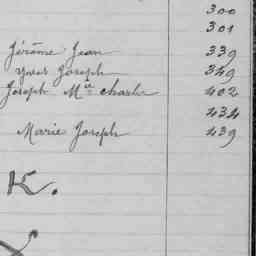 300
301
Jérôme Jean 339
Yves Joseph 349
Joseph Mie Charles 402
434
Marie Joseph 439
K.